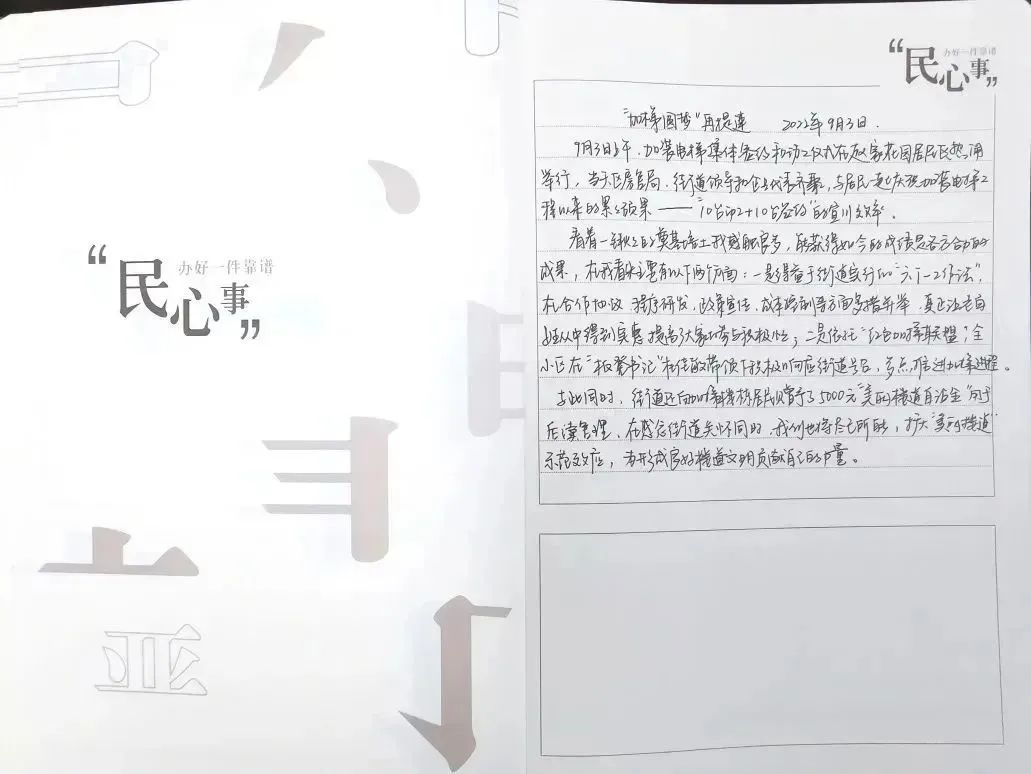 “民心事”
办好一件靠谱
“民心事”
办好一件靠谱
“加梯圆梦”再提速 2022年9月3日.
9月3日上午,加装电梯集体签约和动工仪式在赵家花园居民区热闹
举行,当天区房管局、街道领导和企业代表齐聚,与居民一起庆祝加装电梯工
程以来的累累硕果——“10台动工+10台签约”的宜川效率。
看着一锹锹的奠基培土我感触良多,能获得如今的成绩是各方合力的
成果,在我看来主要有以下两个方面:一是得益于街道实行的“六个一工作法”,
在合作协议、程序研发、政策宣传、成本控制等方面多措并举,真正让老百
姓从中得到实惠,提高了大家的参与积极性;二是依托“红色加梯联盟”,全
小区在“板凳书记” 的带领下积极响应街道号召,多点推进加梯进程。
与此同时,街道还向加梯楼栋居民颁予了5000元“美丽楼道自治金”用于
后续管理,在感念街道关怀同时,我们也将尽己所能,扩大“美丽楼道”
示范效应,为形成良好楼道文明贡献自己的力量。